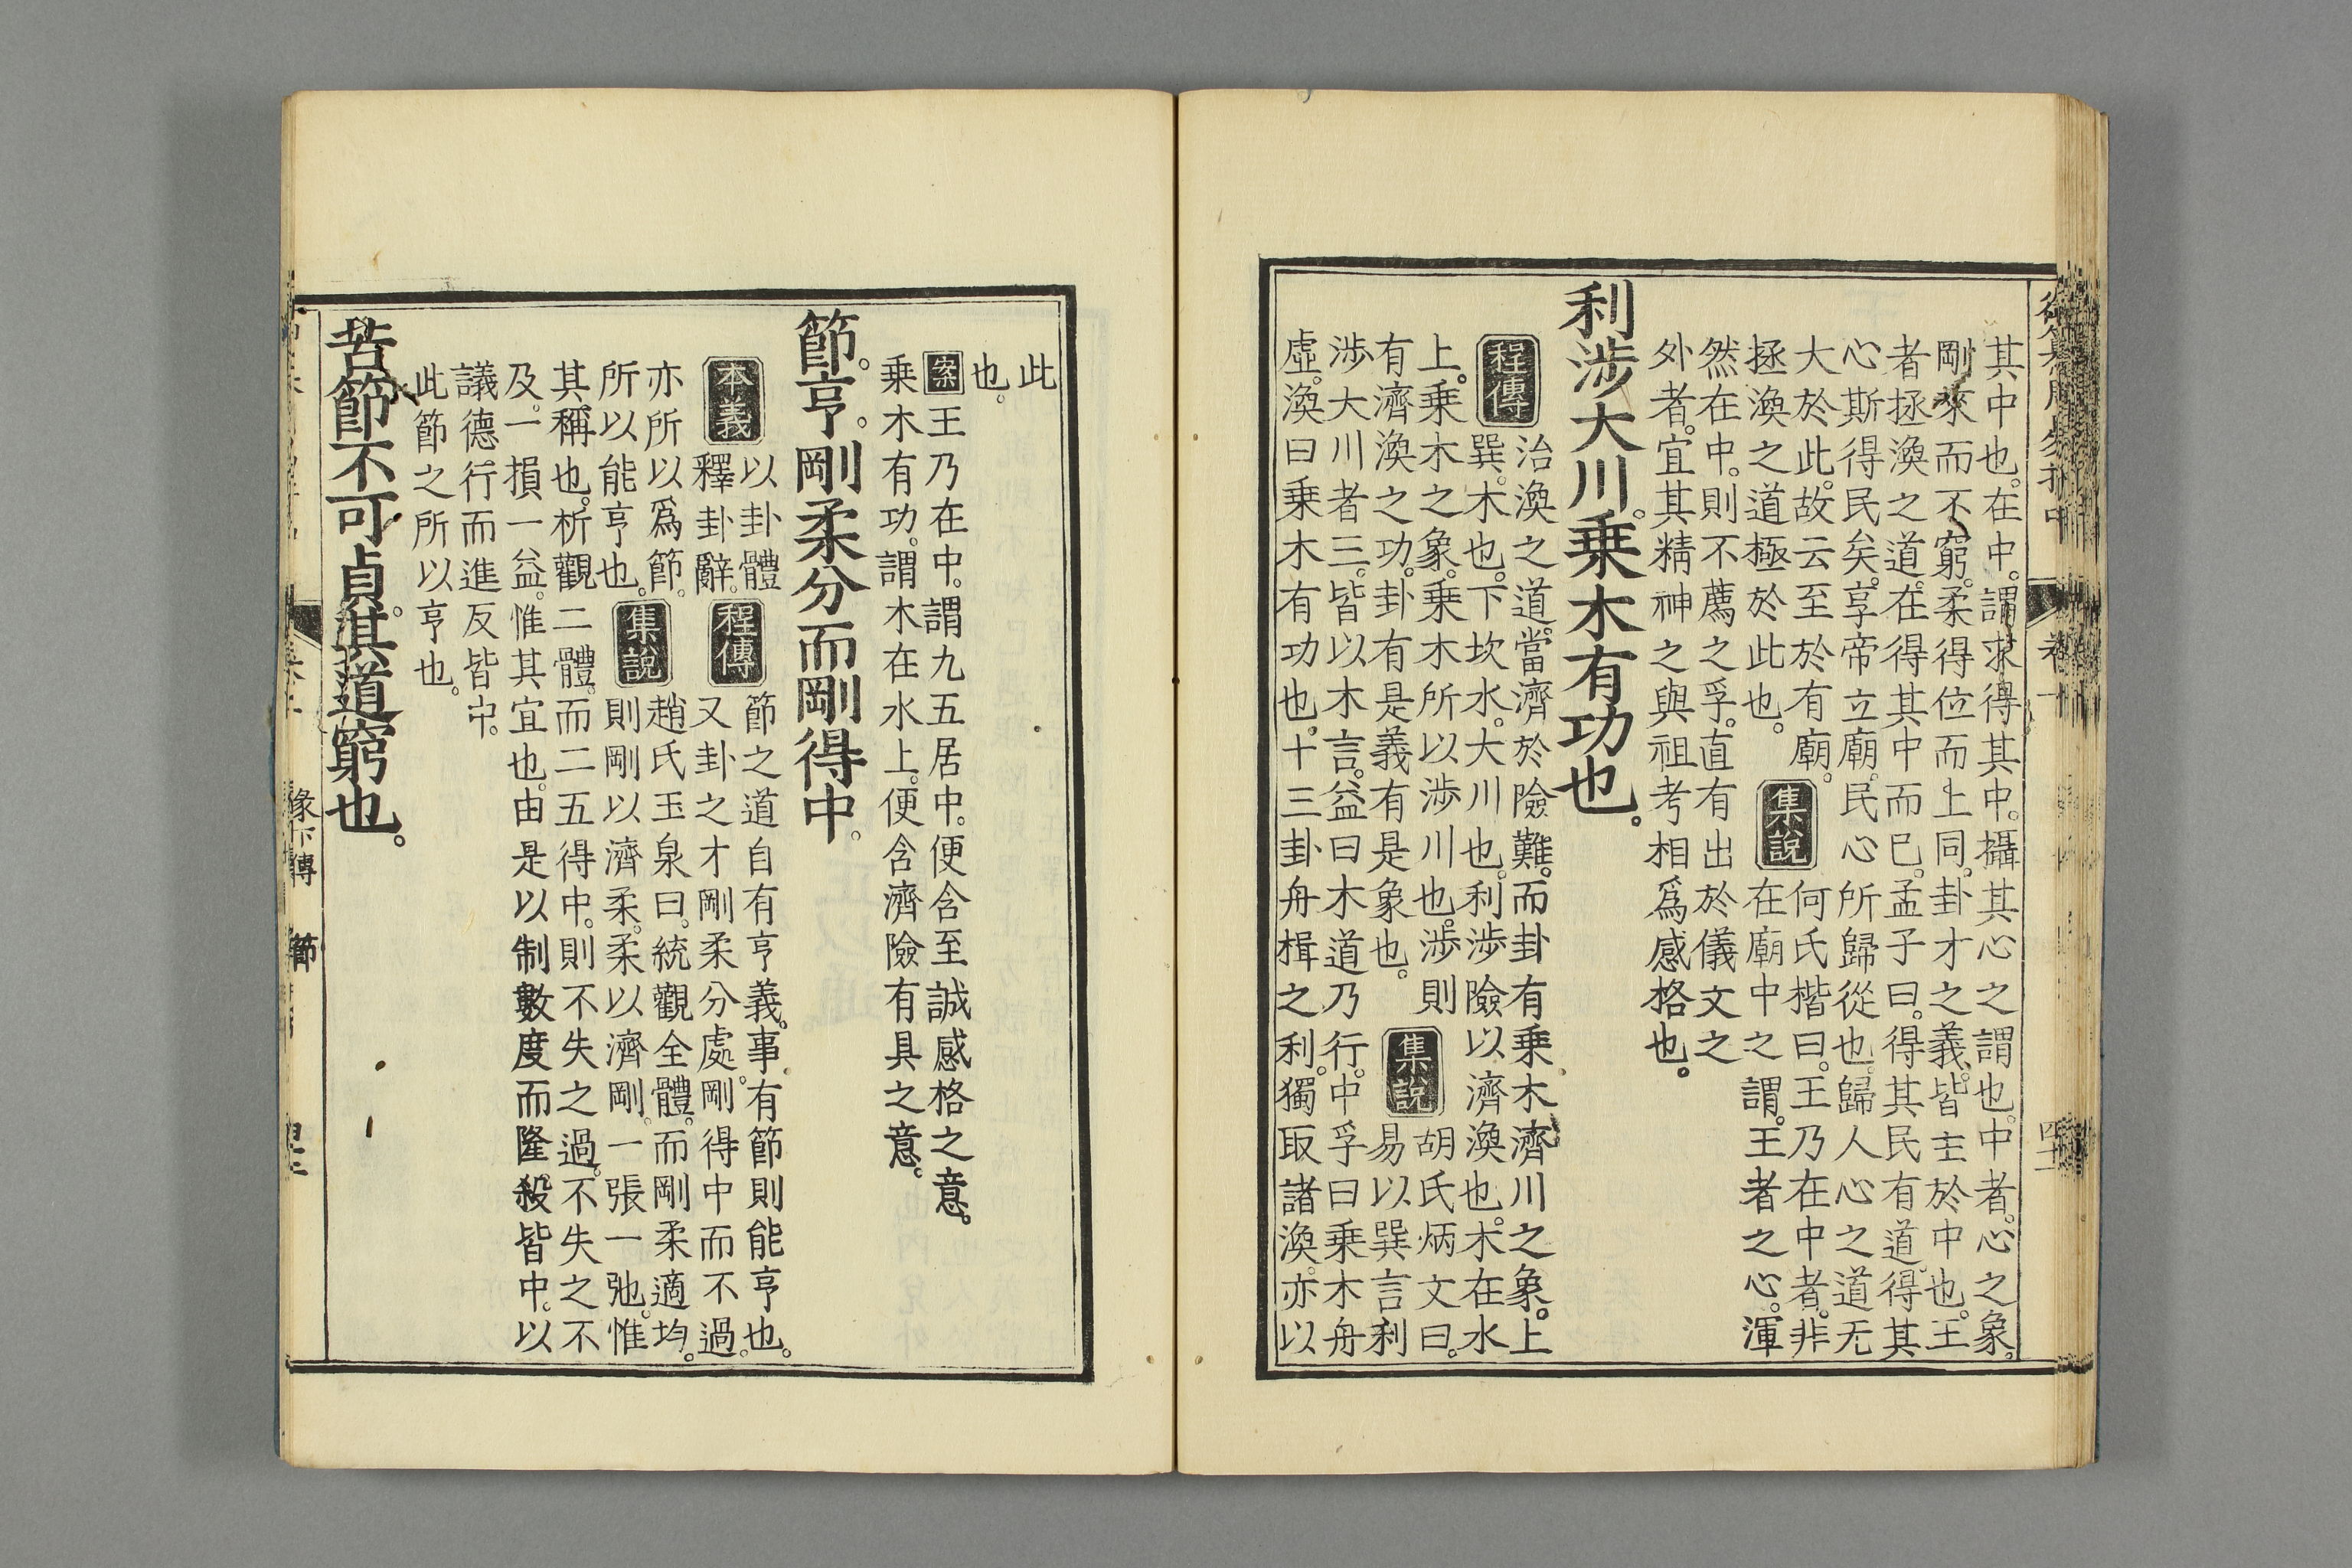 御纂周易折中 卷十 四十二
其中也。在中。謂求得其中。攝其心之謂也。中者。心之象。
剛來而不窮。柔得位而上同。卦才之義。皆主於中也。王
者拯渙之道。在得其中而已。孟子曰。得其民有道。得其
心斯得民矣。享帝立廟。民心所歸從也。歸人心之道无
大於此。故云至於有廟。
拯渙之道極於此也。
集說
何氏楷曰。王乃在中者。非
在廟中之謂。王者之心。渾
然在中。則不薦之孚。直有出於儀文之
外者。宜其精神之與祖考相爲感格也。
利涉大川。乘木有功也。
程傳
治渙之道。當濟於險難。而卦有乘木濟川之象。上
巽。木也。下坎水。大川也。利涉險以濟渙也。木在水
上。乘木之象。乘木所以涉川也。涉則
有濟渙之功。卦有是義有是象也。
集說
胡氏炳文曰。
易以巽言利
涉大川者三。皆以木言。益曰木道乃行。中孚曰乘木舟
虛。渙曰乘木有功也。十三卦舟楫之利。獨取諸渙。亦以
此
也。
案 王乃在中。謂九五居中。便含至誠感格之意。
乘木有功。謂木在水上。便含濟險有具之意。
節。亨。剛柔分而剛得中。
本義
以卦體
釋卦辭。
程傳
節之道自有亨義。事有節則能亨也。
又卦之才剛柔分處。剛得中而不過。
亦所以爲節。
所以能亨也。
集說
趙氏玉泉曰。統觀全體。而剛柔適均。
則剛以濟柔。柔以濟剛。一張一弛。惟
其稱也。析觀二體。而二五得中。則不失之過。不失之不
及。一損一益。惟其宜也。由是以制數度而隆殺皆中。以
議德行而進反皆中。
此節之所以亨也。
苦節不可貞。其道窮也。
彖下傳 節